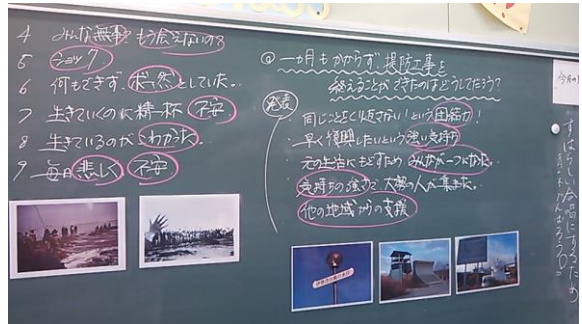 4 みんな無事? もう会えないの?
5 ショック
6 何もできず、ボウ然としていた。
7 生きていくのに精一杯 不安
8 生きているのがこわかった。
9 毎日悲しく 不安
◎一ヵ月もかからず、堤防工事を
終えることができたのはどうしてだろう?
発表
・同じことをくり返さない!という団結力!
・早く復興したいという強い気持ち
・元の生活にもどすため みんなが一つになった。
・気持ちの強さで 大勢の人が集まった。
・他の地域からの支援
今月の
すばらしい合唱にするため